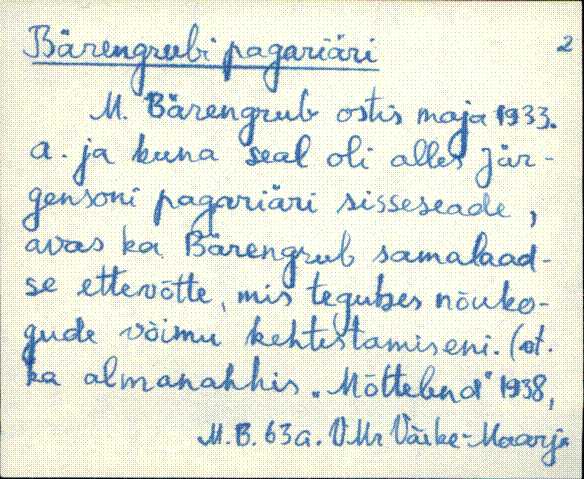 Bärengrubi pagariäri 2
M. Bärengrub ostis maja 1933.
a. ja kuna seal oli alles Jür-
gensoni pagariäri sisseseade,
avas ka Bärengrub samalaad-
se ettevõtte, mis tegutses nõuko-
gude võimu kehtestamiseni. (vt.
ka almanahhis "Mõttelend" 1938,
M.B. 63 a. VMr Väike-Maarja